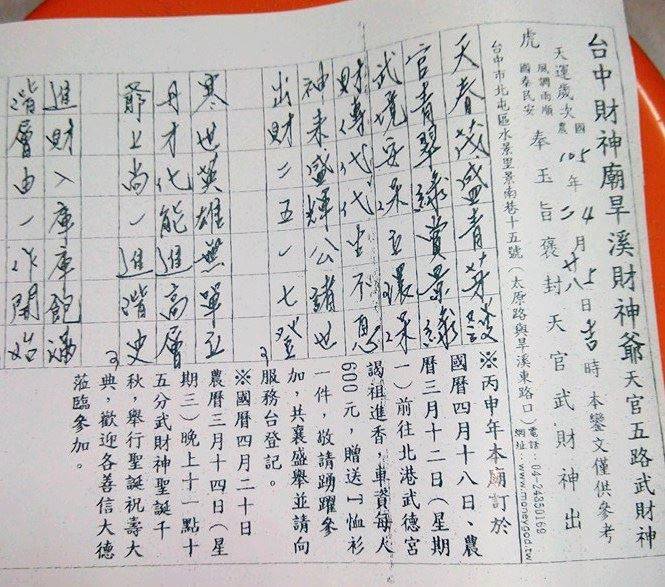 台中財神廟旱溪財神爺天官五路武財神
天運歲次國農105年4二月5廿八日吉時 本鑾文僅供參考
虎 風調雨順 國泰民安 奉玉旨褒封天官武財神出
台中市北屯區水景里景南巷十五號(太原路與旱溪東路口) 電話:04-24350169 網址:www.moneygod.tw
天春茂盛青芽發
官青翠綠賞景綠
武境安保五禮保
財傳代代生不息
神來盛輝公諸世
出財二五一七登
寒世英雄無單立
丹才化能進高層
爺上尚一進階史
進財入庫庫飽滿
階層由一作開始
※丙申年本廟訂於
國曆四月十八日、農
曆三月十二日(星期
一)前往北港武德宮
謁祖進香,車資每人
600元,贈送T恤衫
一件,敬請踴躍參
加,共襄盛舉並請向
服務台登記。
※國曆四月二十日
農曆三月十四日(星
期三)晚上十一點十
五分武財神聖誕千
秋,舉行聖誕祝壽大
典,歡迎各善信大德
蒞臨參加。